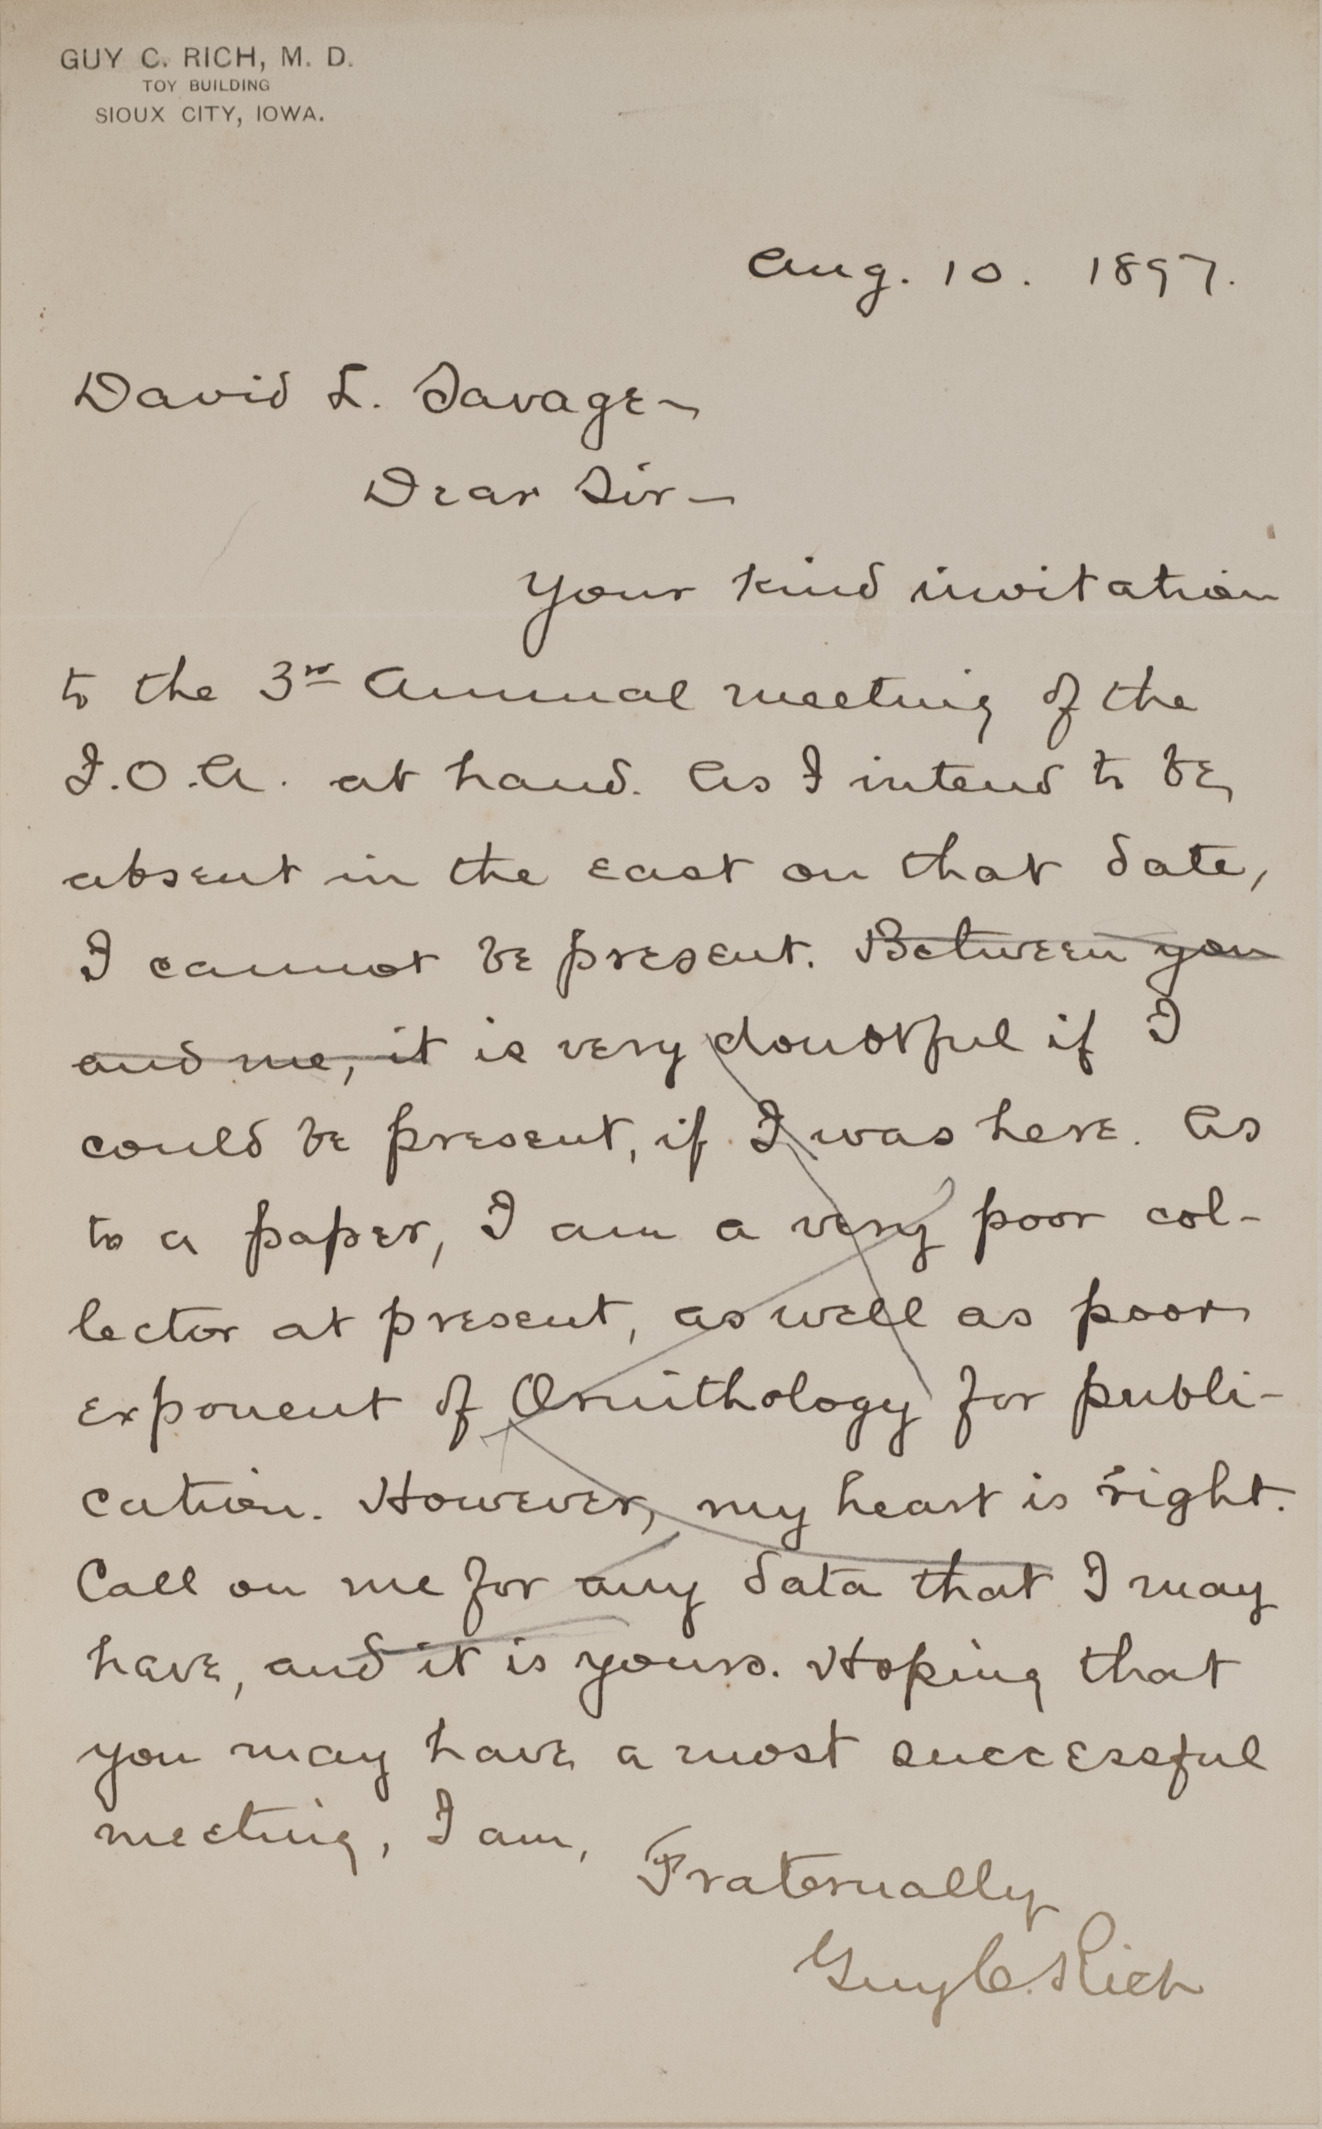 GUY C. RICH, M. D.
TOY BUILDING
SIOUX CITY, IOWA.
Aug. 10. 1897.
David L. Savage –
Dear Sir –
Your kind invitation
to the 3rd Annual meeting of the
I.O.A. at hand. As I intend to be
absent in the east on that date,
I cannot be present. Between you
and me, it is very doubtful if I
could be present, if I was here. As
to a paper, I am a very poor col-
lector at present, as well as poor
exponent of Ornithology for publi-
cation. However, my heart is right.
Call on me for any data that I may
have, and it is yours. Hoping that
you may have a most successful
meeting, I am,
Fraternally
Guy C. Rich